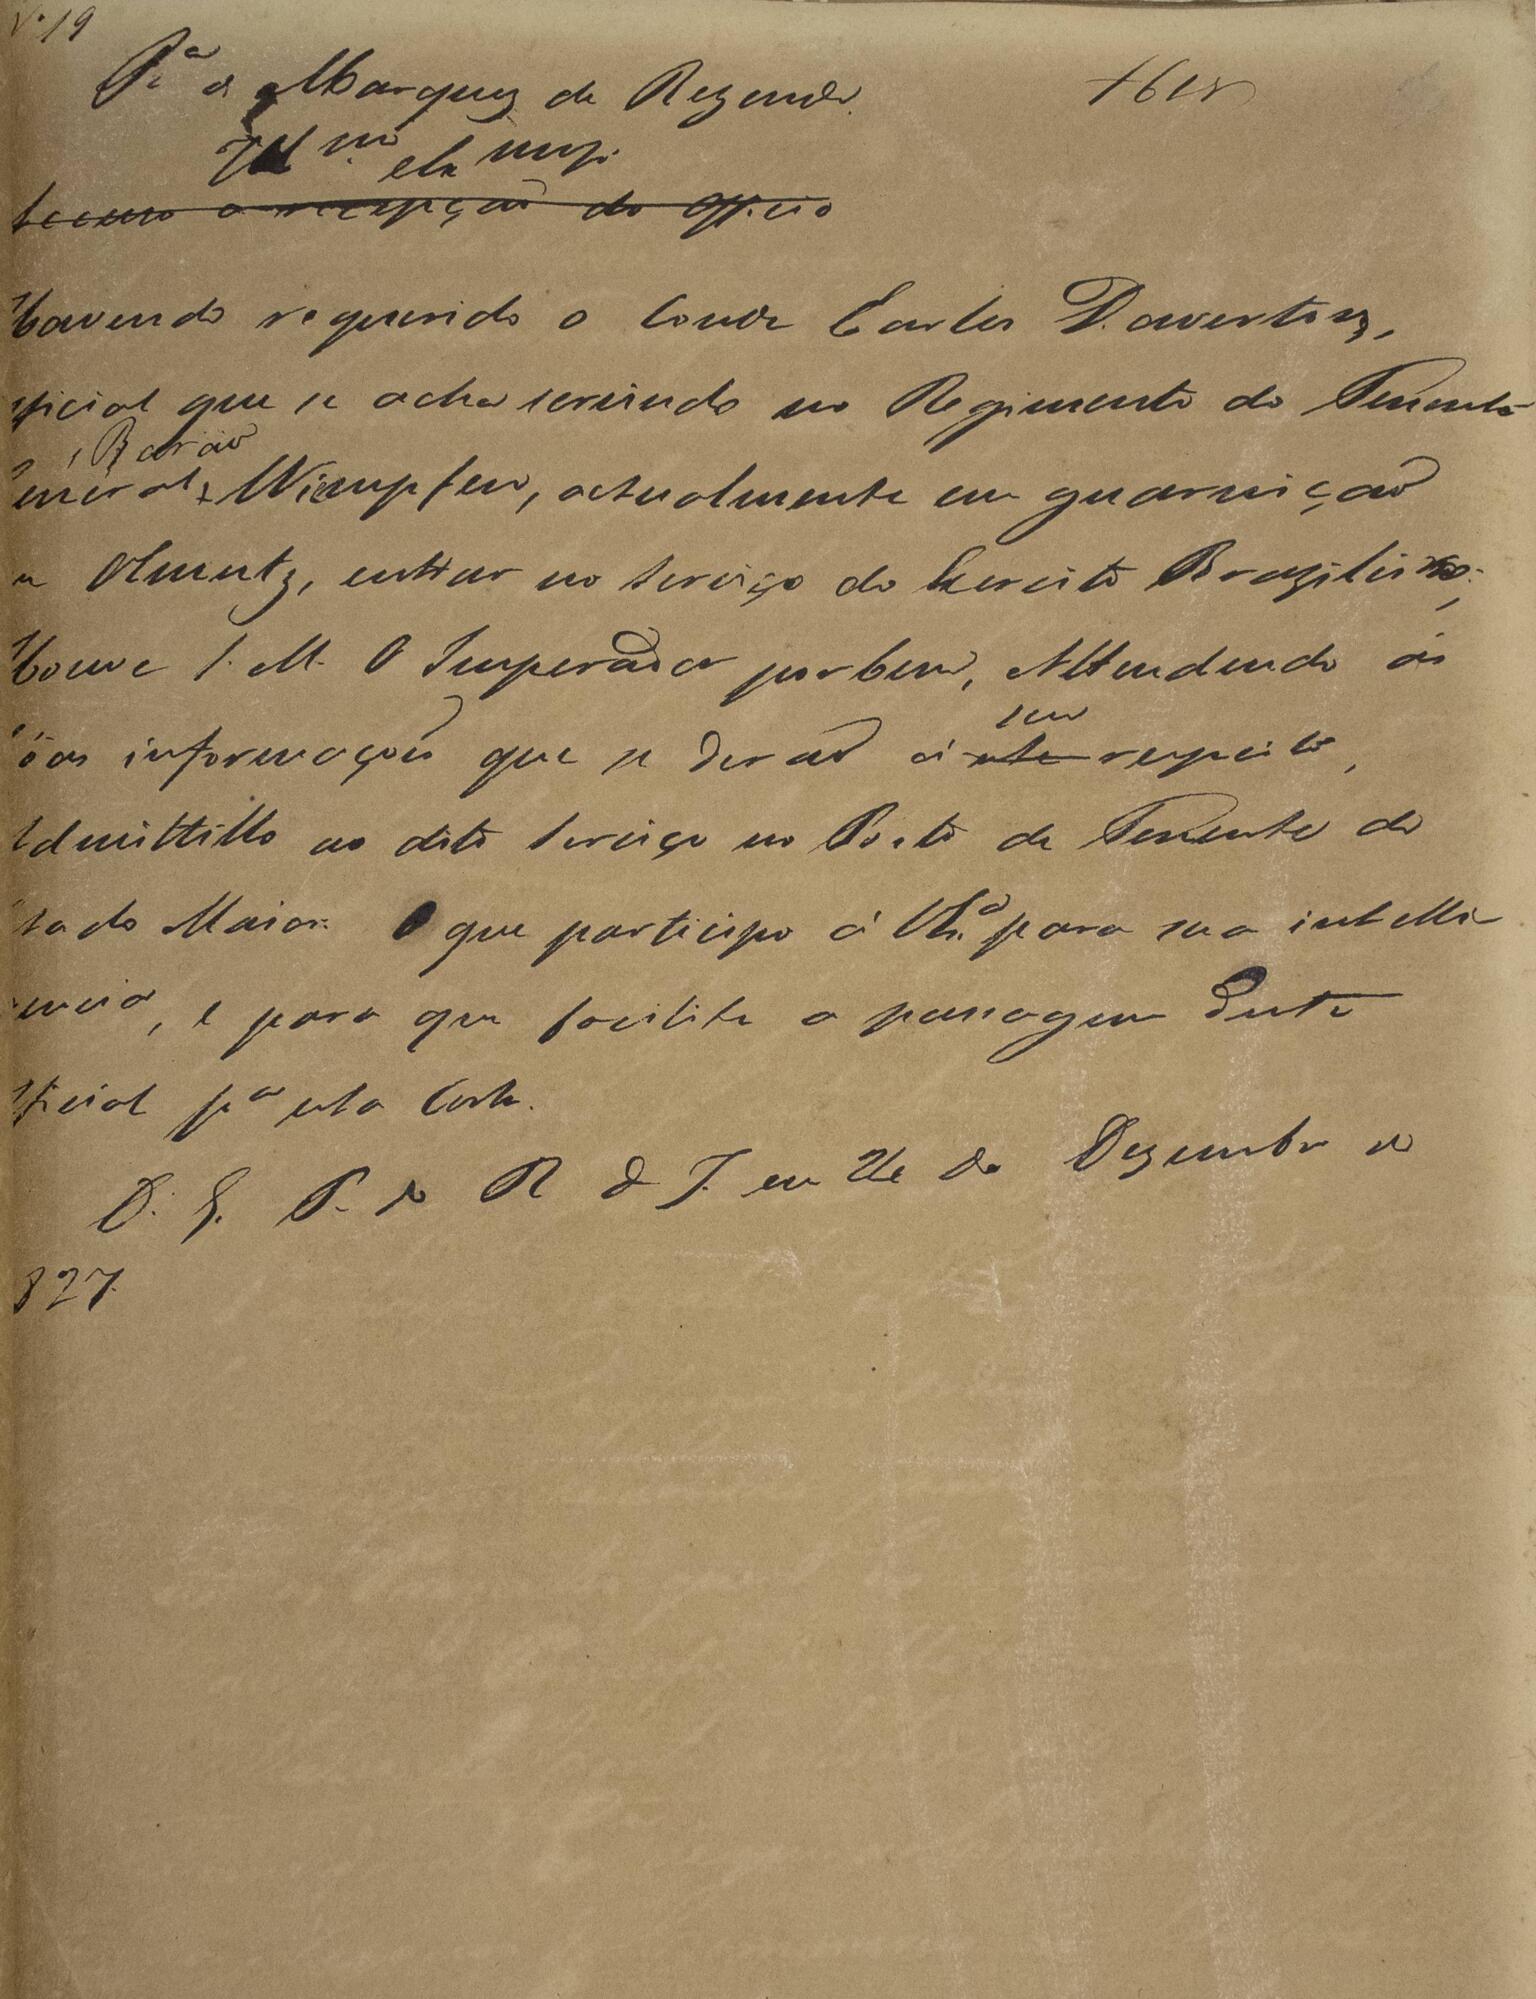 Nº 19
Pª o Marquez de Rezende.
Illmo
Accuso a recepção do Officio
Havendo requerido o Conde Carlos Davertas,
official que se acha servindo no Regimento do Tenente
General, Barão Wimpfen, actualmente em guarnição
em Olmutz, entrar no serviço do Exercito Brazileiro;
Houve S. M. O Imperador por bem, Attendendo ás
bôas informações que se derão á este seu respeito,
Admittillo no dito serviço no Posto de Tenente do
Estado Maior. O que participo á V. Sª para sua intelli
gencia, e para que facilite a passagem deste
official pª esta Corte.
D. G. P. do R de J. em 26 de Dezembro de
1827.